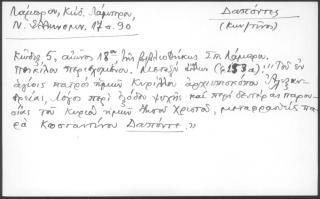 Λάμαρον, Κώδ. Λάμπρου, Δαπόντες
Ν. Ἑλληνομν. 17 σ. 90 (Κων/τῖνος)
Κώδιξ 5, αἰῶνος 18ου τῆς βιβλιοθήκης Σπ. Λάμπρου.
Ποικίλου περιεχομένου, μεταξὺ ἄλλων (φ. 153α): "Τοῦ ἐν
ἁγίοις πατρὸς ἡμῶν Κυρίλλου ἀρχιεπισκόπου Ἀλεξαν-
δρείας, λόγος περὶ ἐξόδου ψυχῆς καὶ περὶ δευτέρας παρου-
σίας τοῦ Κυρίου ἡμῶν Ἰησοῦ Χριστοῦ, μεταφρασθεὶς πα-
ρὰ Κωσταντίνου Δαπόντε."